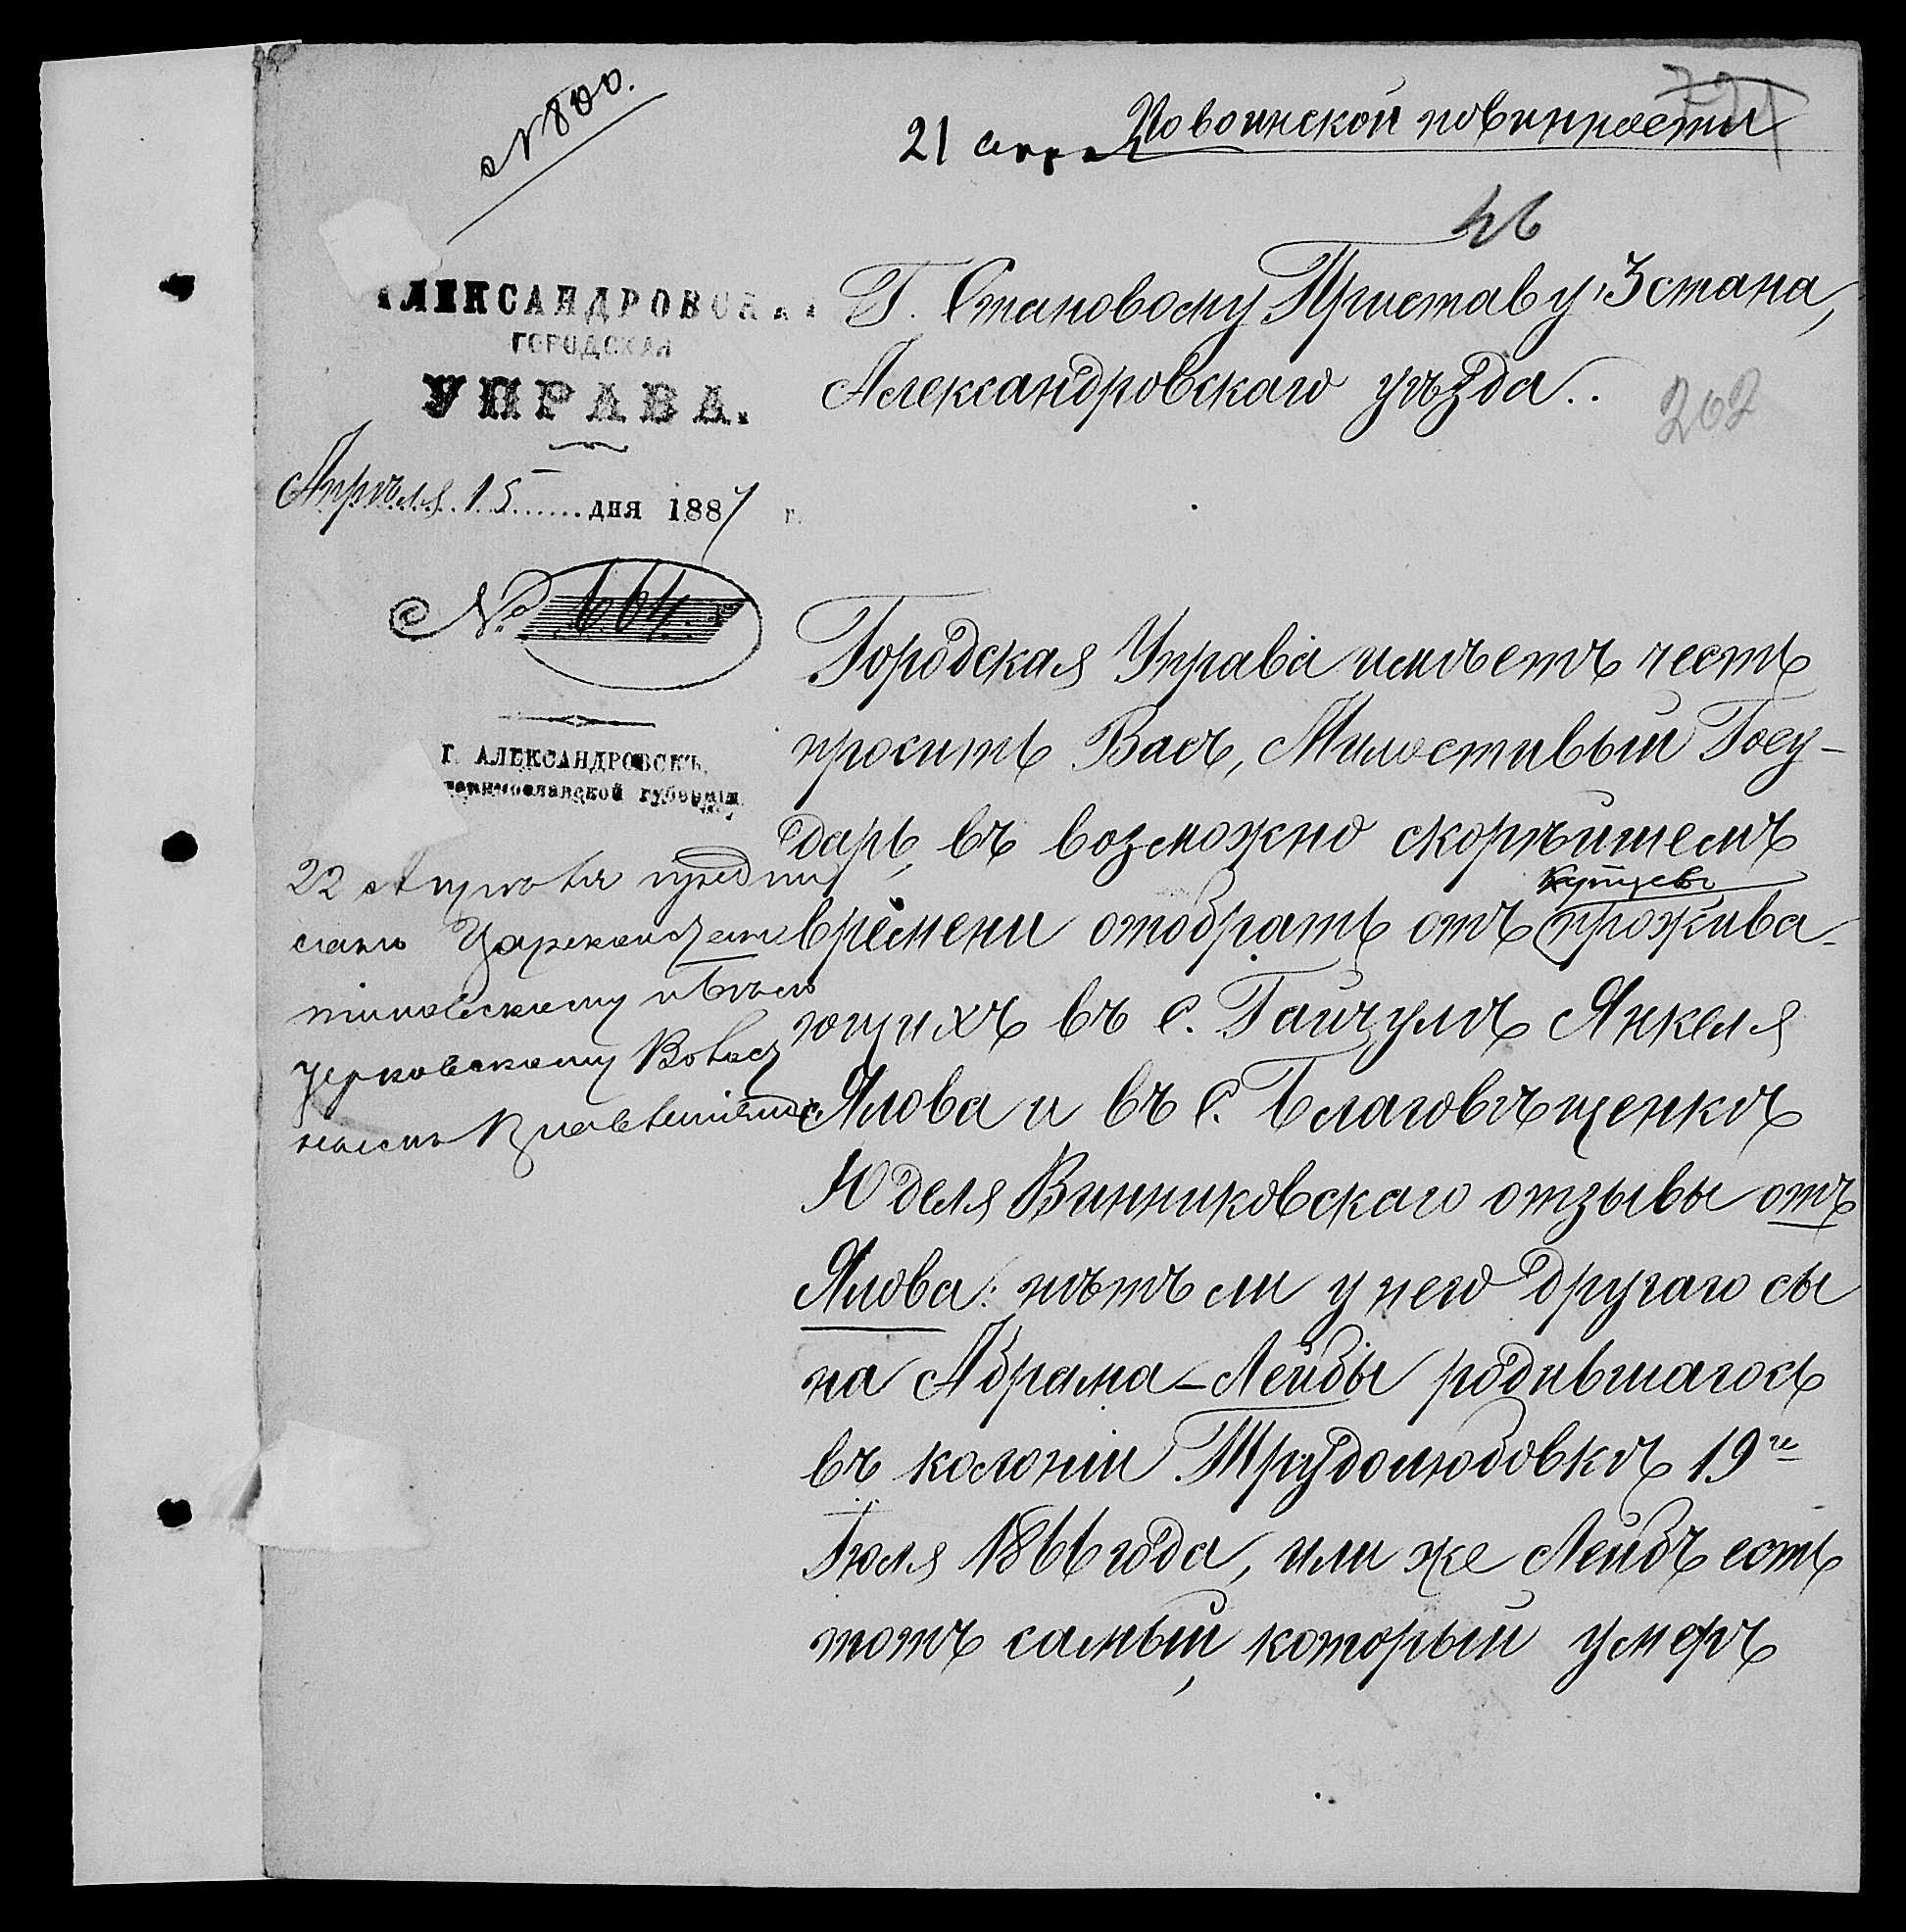 № 800.
21 апр По воинской повинности
46
АЛЕКСАНДРОВСКАЯ
ГОРОДСКАЯ
УПРАВА.
Апрѣля 15 дня 1887 г.
№ 664
Г. АЛЕКСАНДРОВСКЪ,
Екатеринославской губерніи
Г. Становому Приставу 3 стана,
Александровскаго уѣзда..
202
Городская Управа имѣетъ честь
просить Васъ, Милостивый Госу-
дарь, въ возможно скорѣйшемъ
времени отобрать отъ купцевъ прожива-
ющихъ въ с. Гайчулѣ Янкеля
Ялова и въ с. Благовѣщенкѣ
Юделя Винниковскаго отзывы отъ
Ялова: нѣтъ ли у него другаго сы
на Абрама-Лейбы родившагось
въ колоніи Трудолюбовкѣ 19го
Іюля 1866 года, или же Лейбъ есть
тотъ самый, который умеръ
22 Апрѣля предпи
сано Цареконстан
тиновскому и Бѣло
церковскому Волос